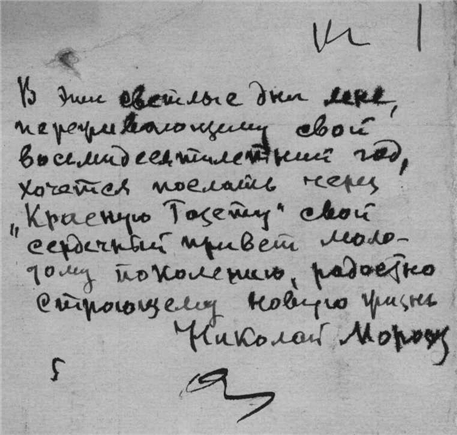 В эти светлые дни мне,
переживающему свой
восьмидесятилетний год,
хочется послать через
„Красную Газету" свой
сердечный привет моло-
дому поколению, радостно
строющему новую жизнь
Николай Мороз
5